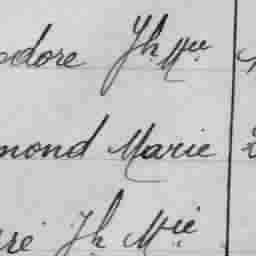 odore Jh Mie
mond Marie
rré Jh Mie